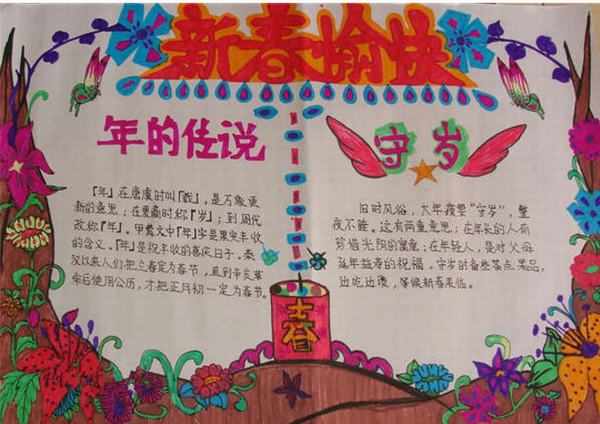 新春愉快
年的传说
「年」在唐虞时叫「载」，是万象更
新的意思；在夏商时称「岁」；到周代
改称『年』。甲骨文中『年』字是果实丰收
的含义，『年』是祝丰收的喜庆日子，秦
汉以来人们把立春定为春节，直到辛亥革
命后使用公历，才把正月初一定为春节。
守岁
旧时风俗，大年夜要“守岁”，整
夜不睡。这有两重意思：在年长的人有
珍惜光阴的寓意；在年轻人，是对父母
延年益寿的祝福。守岁时备些茶点果品，
边吃边聊，等候新春来临。
春